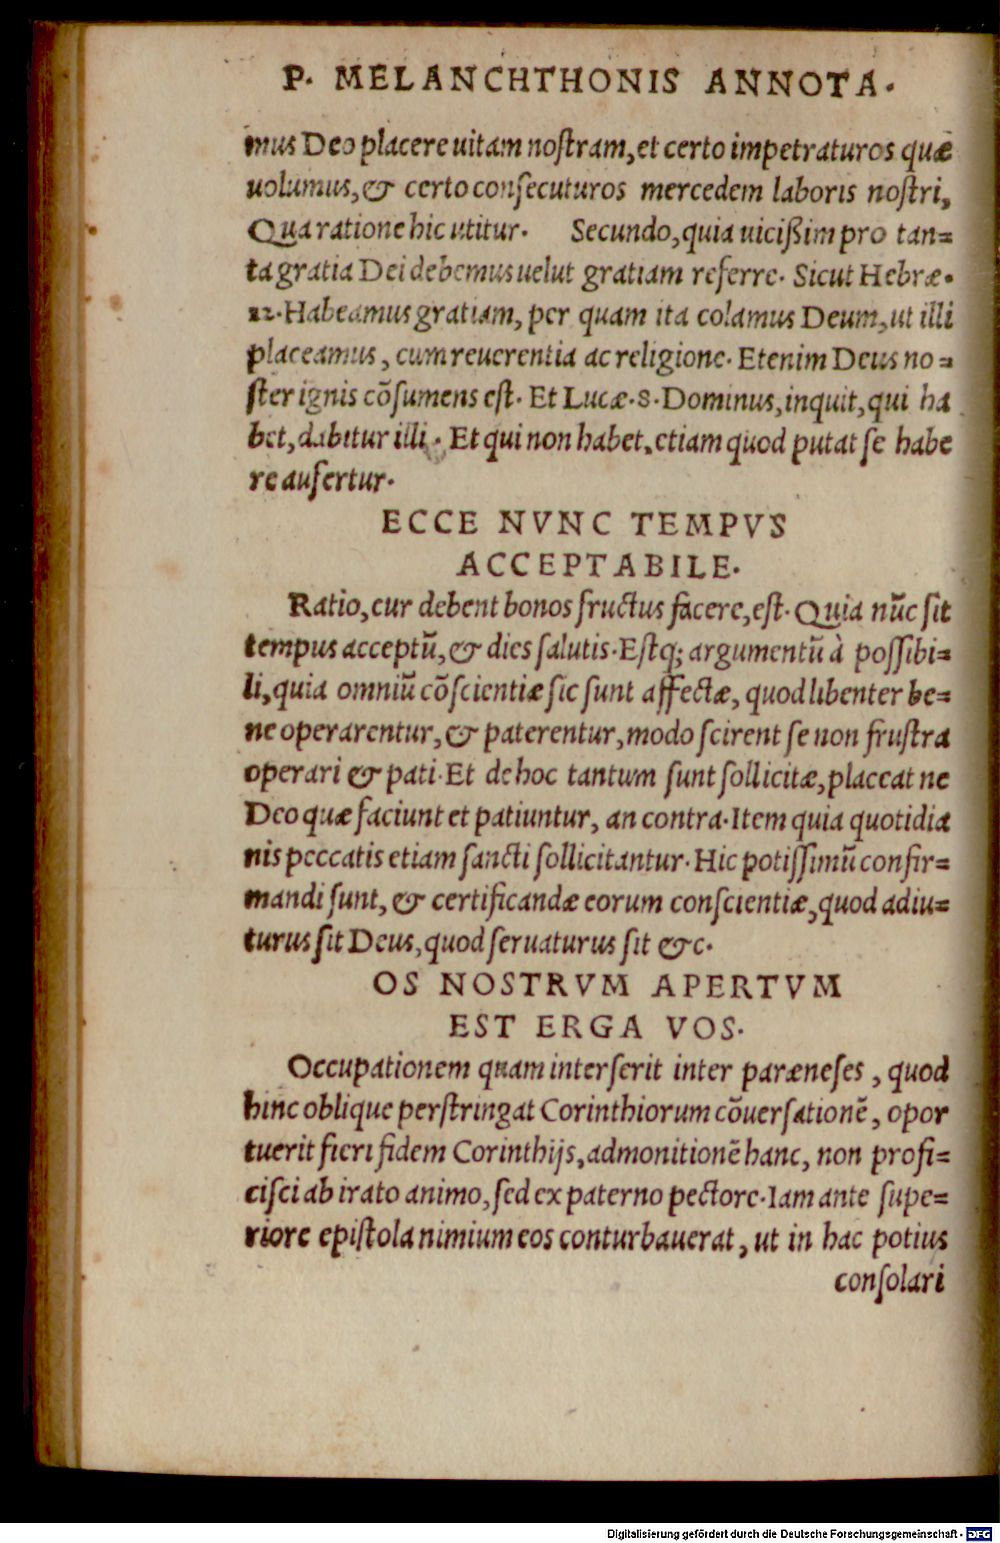 P. MELANCHTHONIS ANNOTA.
mus Deo placere uitam noſtram, et certo impetraturos quæ
uolumus, & certo conſecuturos mercedem laboris noſtri,
Qua ratione hic utitur. Secundo, quia uicißim pro tan=
ta gratia Dei debemus uelut gratiam referre. Sicut Hebræ.
12. Habeamus gratiam, per quam ita colamus Deum, ut illi
placeamus, cum reuerentia ac religione. Etenim Deus no=
ſter ignis cõſumens eſt. Et Lucæ. 8. Dominus, inquit, qui ha
bet, dabitur illi. Et qui non habet, etiam quod putat ſe habe
re aufertur.
ECCE NVNC TEMPVS
ACCEPTABILE.
Ratio, cur debent bonos fructus facere, eſt. Quia nũc ſit
tempus acceptũ, & dies ſalutis. Eſtq; argumentũ à poſſibi=
li, quia omniũ cõſcientiæ ſic ſunt affectæ, quod libenter be=
ne operarentur, & paterentur, modo ſcirent ſe non fruſtra
operari & pati. Et de hoc tantum ſunt ſollicitæ, placeat ne
Deo quæ faciunt et patiuntur, an contra. Item quia quotidia
nis peccatis etiam ſancti ſollicitantur. Hic potiſſimũ confir=
mandi ſunt, & certificandæ eorum conſcientiæ, quod adiu=
turus ſit Deus, quod ſeruaturus ſit &c.
OS NOSTRVM APERTVM
EST ERGA VOS.
Occupationem quam interſerit inter paræneſes, quod
hinc oblique perſtringat Corinthiorum cõuerſationẽ, opor
tuerit fieri fidem Corinthijs, admonitionẽ hanc, non profi=
ciſci ab irato animo, ſed ex paterno pectore. Iam ante ſupe=
riore epiſtola nimium eos conturbauerat, ut in hac potius
conſolari
Digitalisierung gefördert durch die Deutsche Forschungsgemeinschaft - DFG